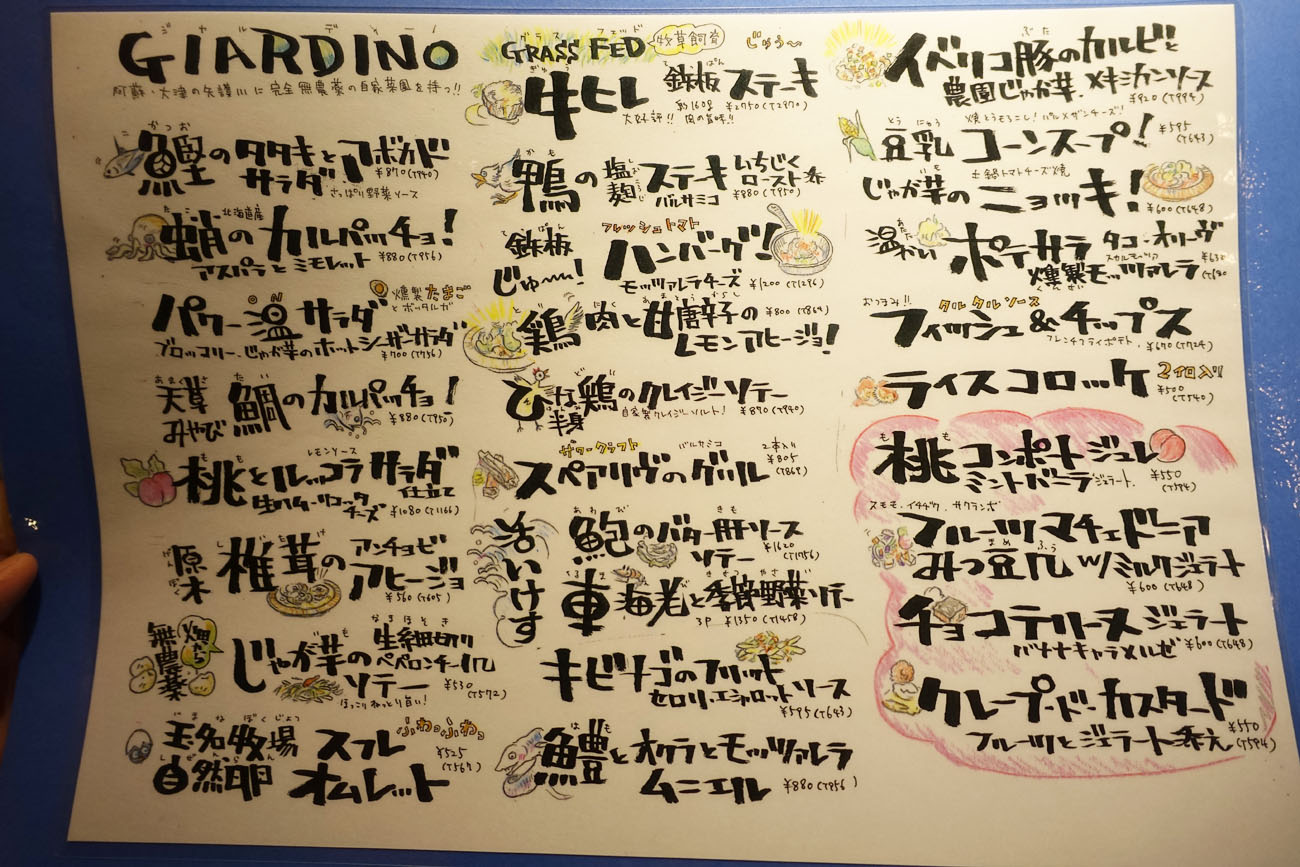 ジャルディーノ
GIARDINO
阿蘇・大津の矢護川に完全無農薬の自家菜園を持つ!!
かつお
鰹のタタキとアボカド
サラダ ¥870(T940)
さっぱり野菜ソース
北海道産
蛸のカルパッチョ!
アスパラとミモレット ¥880(T950)
燻製たまご
とボッタルガ
パワー温サラダ
ブロッコリー、じゃが芋のホットシーザーサラダ
¥700(T756)
天草
みやび
たい
鯛のカルパッチョ!
¥880(T950)
レモンソース
もも
桃とルッコラサラダ
仕立て
生ハム・リコッタ
チーズ ¥1080(T1166)
原木
椎茸のアンチョビ
アヒージョ
¥560(T605)
無農薬
畑から
なまほそぎ
じゃが芋の生細切り
ペペロンチーノ
ソテー ¥530(T572)
ほっこりねっとり旨い!
たまなぼくじょう
玉名牧場
自然卵
ふわっふわっ
スフレ
オムレット
¥525(T567)
グラスフェッド
GRASS FED 牧草飼育
じゅう〜
ぎゅう
牛ヒレ
てっぱん
鉄板ステーキ
約160g ¥2750(T2970)
大好評!! 肉の旨味!!
かも
鴨の塩麹ステーキ いちじく
ロースト添
バルサミコ ¥880(T950)
フレッシュトマト
鉄板
じゅ〜〜!
ハンバーグ!
モッツァレラチーズ ¥1200(T1296)
鶏肉と甘唐辛子の ¥800(T864)
レモンアヒージョ!
ひな鶏のクレイジーソテー
半身
自家製クレイジーソルト! ¥870(T940)
ザワークラフト
バルサミコ
2本入り
スペアリヴのグリル
¥805
(T869)
活いけす
あわび
きも
鮑のバター肝ソース
ソテー ¥1620
(T1750)
車海老と季節野菜ソテー
3P ¥1350(T1458)
キビナゴのフリット
セロリ・エシャロットソース
¥595(T643)
はも
鱧とオクラとモッツァレラ
ムニエル ¥880(T950)
ぶた
イベリコ豚のカルビと
農園じゃが芋、メキシカンソース
¥920(T994)
焼とうもろこし!パルメザンチーズ!
とうにゅう
豆乳 コーンスープ! ¥595
(T643)
土鍋トマトチーズ焼
じゃが芋のニョッキ!
¥600(T648)
あたた
温わい ポテサラ タコ・オリーヴ
スカルモッツァ
燻製モッツァレラ
くんせい
おつまみ!!
タルタルソース
フィッシュ&チップス
フレンチフライポテト、¥670(T724)
ライスコロッケ 2個入り
¥500
(T540)
もも
桃 コンポートジュレ
ミントバニラジェラート、 ¥550
(T594)
スモモ、イチヂク、サクランボ
フルーツマチェドニア
まめ
みつ豆風 w/ミルクジェラート
¥600(T648)
チョコテリーヌジェラート
バナナキャラメルゼ ¥600(T648)
クレープ・ド・カスタード
フルーツとジェラート添え
¥550
(T594)